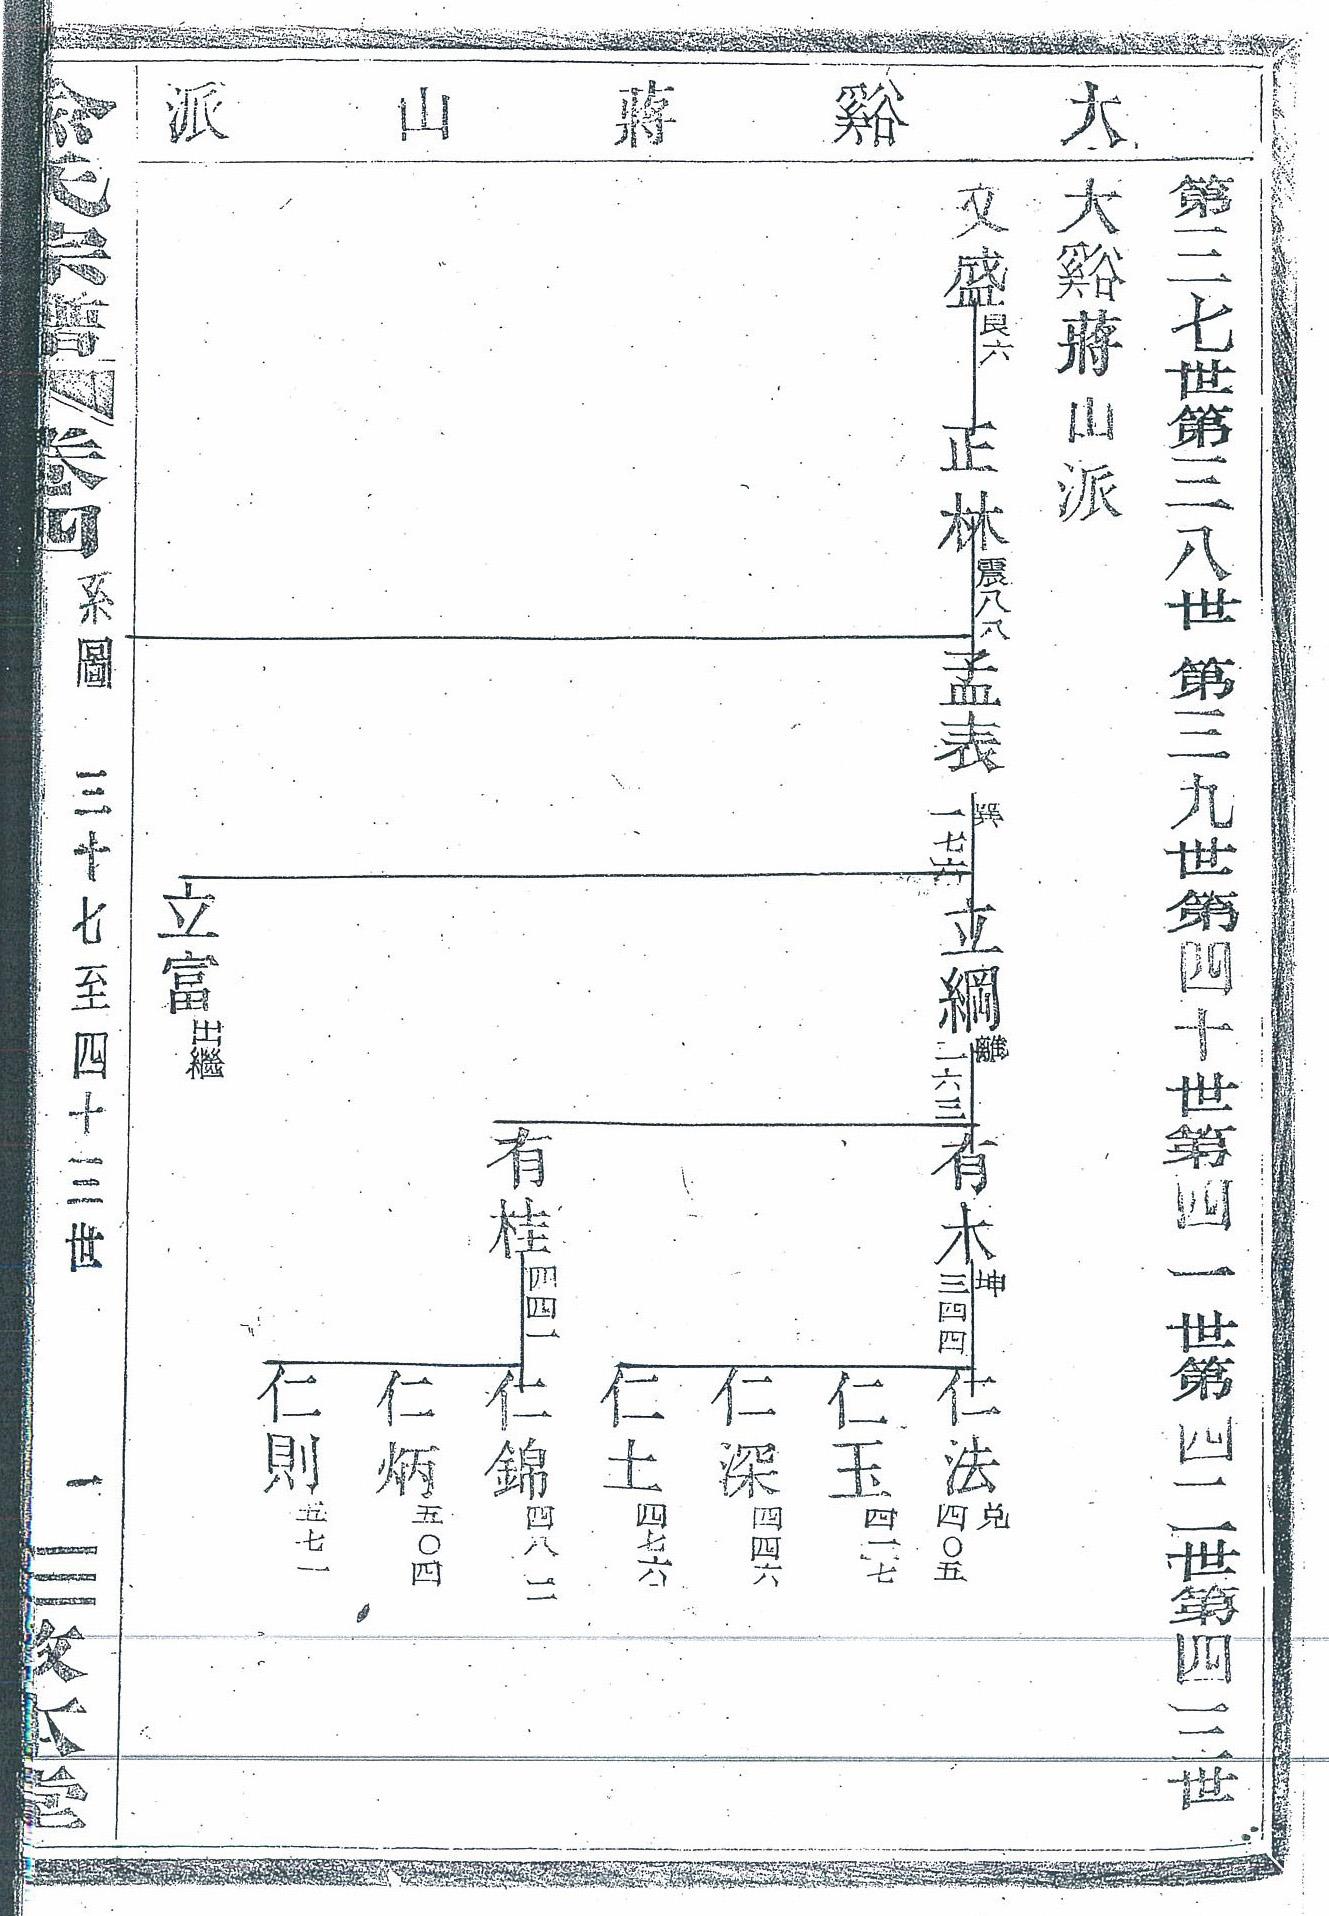 大谿蔣山派
第三七世第三八世第三九世第四十世第四一世第四二世第四三世
大谿蔣山派
文盛
良六
正林
震八八
孟表
巽
一七六
立綱
離
二六三
有木
坤
三四四
仁法
兑
四〇五
仁玉
四一七
仁深
四四六
仁土
四七六
有桂
四四一
仁錦
四八二
仁炳
五〇四
仁則
五七一
立富
出繼
氏宗譜
卷四
系圖
三十七至四十三世
一
三
敦本堂